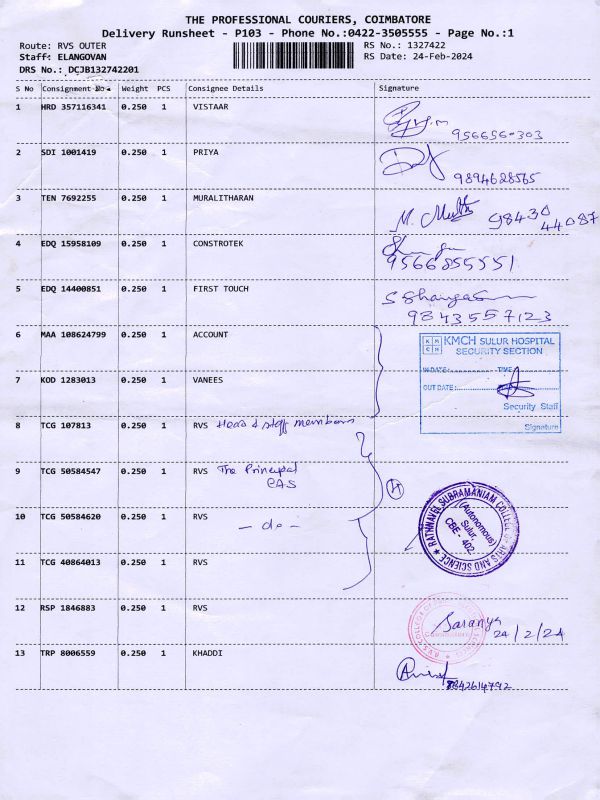 THE PROFESSIONAL COURIERS, COIMBATORE
Delivery Runsheet - P103 - Phone No.:0422-3505555 - Page No.:1
Route: RVS OUTER
RS No.: 1327422
Staff: ELANGOVAN
RS Date: 24-Feb-2024
DRS No.: DCJB132742201
S No Consignment No Weight PCS Consignee Details Signature
1 HRD 357116341 0.250 1 VISTAAR
956656-303
2 SDI 1001419 0.250 1 PRIYA
9894628565
3 TEN 7692255 0.250 1 MURALITHARAN
98430
44087
4 EDQ 15958109 0.250 1 CONSTROTEK
9566855551
5 EDQ 14400851 0.250 1 FIRST TOUCH
9843557123
6 MAA 108624799 0.250 1 ACCOUNT
KMCH SULUR HOSPITAL
SECURITY SECTION
IN DATE: TIME
OUT DATE:
Security Staff
Signature
7 KOD 1283013 0.250 1 VANEES
8 TCG 107813 0.250 1 RVS Head & staff members
9 TCG 50584547 0.250 1 RVS The Principal
CAS
10 TCG 50584620 0.250 1 RVS
- do -
RATHNAVEL SUBRAMANIAM COLLEGE OF ARTS AND SCIENCE
(Autonomous)
Sulur,
CBE - 402.
11 TCG 40864013 0.250 1 RVS
12 RSP 1846883 0.250 1 RVS
Saranya
24/2/24
13 TRP 8006559 0.250 1 KHADDI